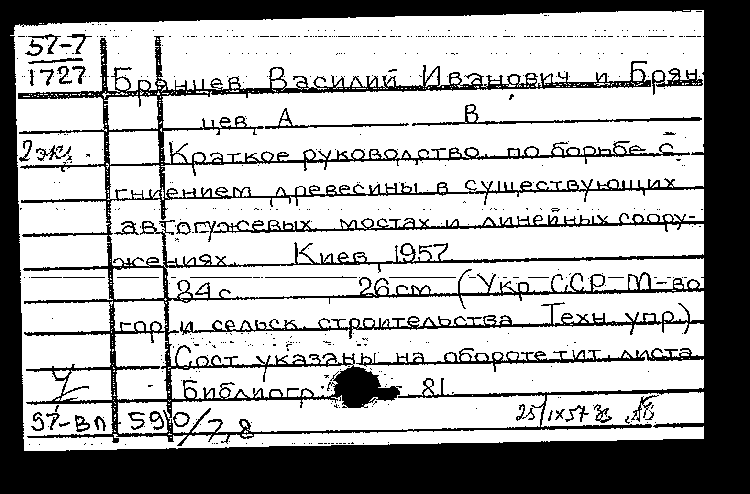 57-7
1727
Брянцев, Василий Иванович и Брян-
цев, А В
2 экз.
Краткое руководство по борьбе с
гниением древесины в существующих
автогужевых мостах и линейных соору-
жениях. Киев, 1957
84 с. 26 см. (Укр. ССР М-во
гор. и сельск. строительства Техн. упр.)
Сост. указаны на обороте тит. листа
Библиогр.: 81
57-вп-590/7,8